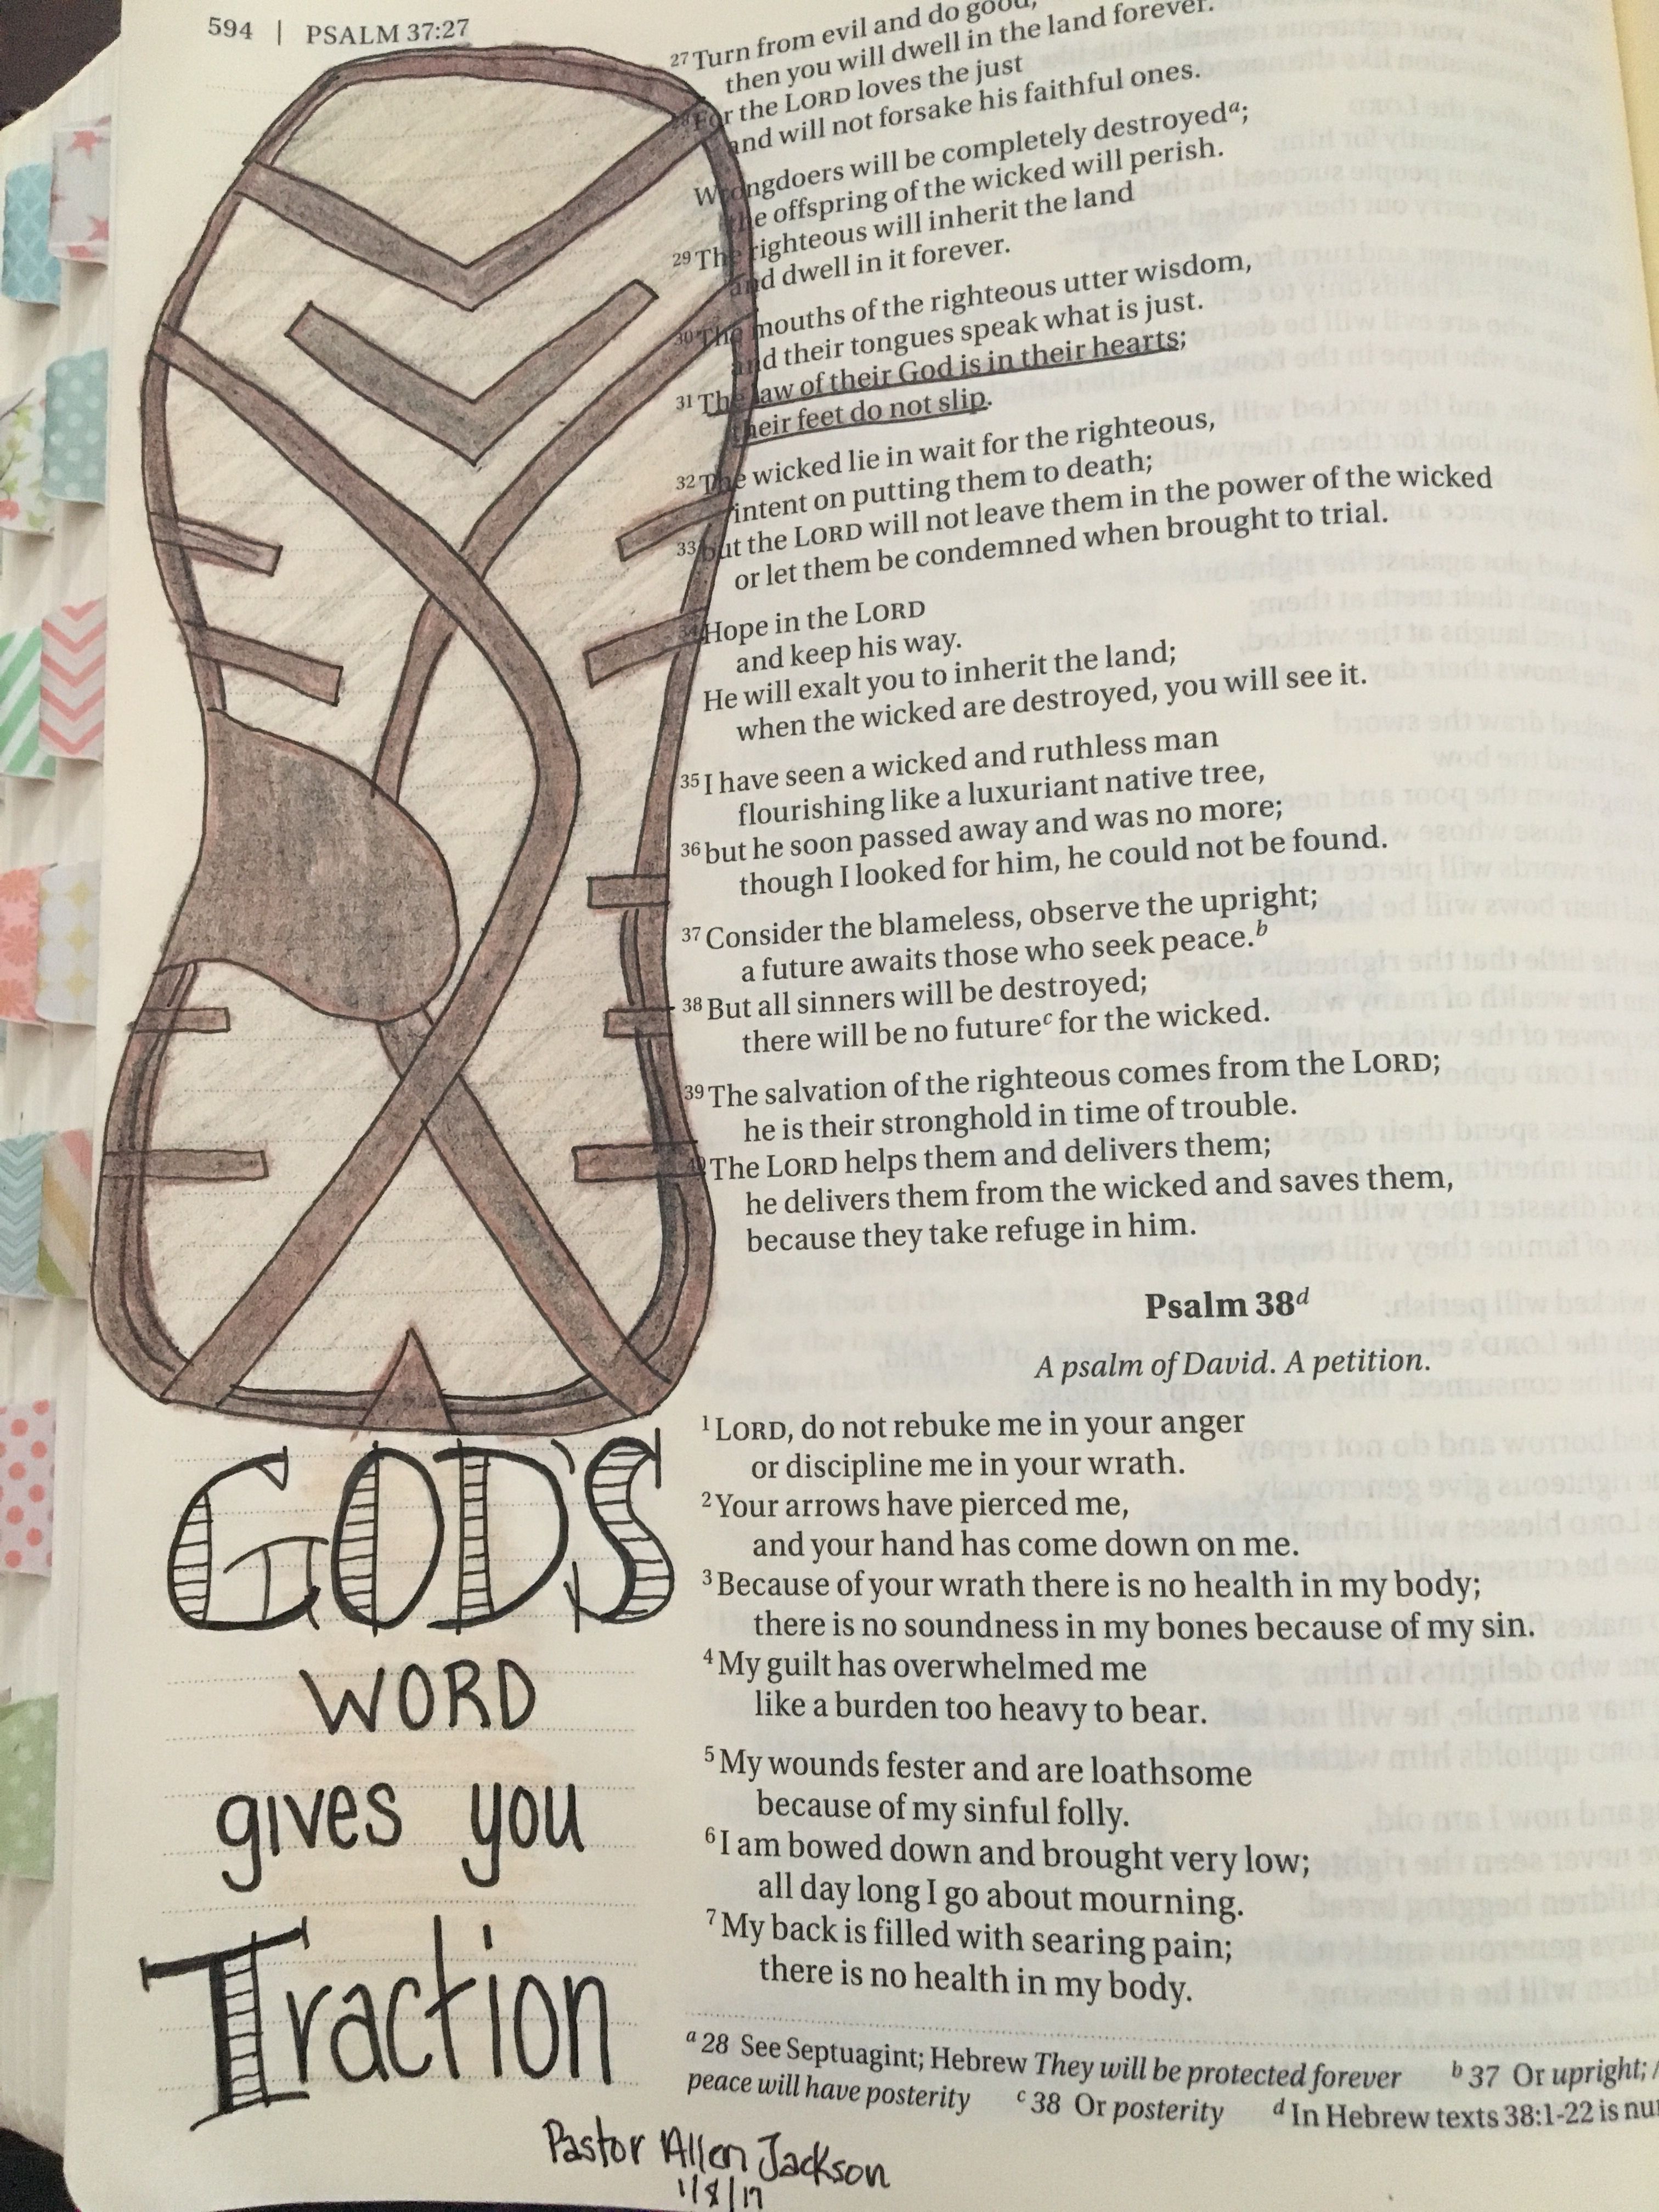 594 | PSALM 37:27
27 Turn from evil and do good,
then you will dwell in the land forever.
28 For the LORD loves the just
and will not forsake his faithful ones.
Wrongdoers will be completely destroyed a;
the offspring of the wicked will perish.
29 The righteous will inherit the land
and dwell in it forever.
30 The mouths of the righteous utter wisdom,
and their tongues speak what is just.
31 The law of their God is in their hearts;
their feet do not slip.
32 The wicked lie in wait for the righteous,
intent on putting them to death;
33 but the LORD will not leave them in the power of the wicked
or let them be condemned when brought to trial.
34 Hope in the LORD
and keep his way.
He will exalt you to inherit the land;
when the wicked are destroyed, you will see it.
35 I have seen a wicked and ruthless man
flourishing like a luxuriant native tree,
36 but he soon passed away and was no more;
though I looked for him, he could not be found.
37 Consider the blameless, observe the upright;
a future awaits those who seek peace. b
38 But all sinners will be destroyed;
there will be no future c for the wicked.
39 The salvation of the righteous comes from the LORD;
he is their stronghold in time of trouble.
40 The LORD helps them and delivers them;
he delivers them from the wicked and saves them,
because they take refuge in him.
Psalm 38 d
A psalm of David. A petition.
1 LORD, do not rebuke me in your anger
or discipline me in your wrath.
2 Your arrows have pierced me,
and your hand has come down on me.
3 Because of your wrath there is no health in my body;
there is no soundness in my bones because of my sin.
4 My guilt has overwhelmed me
like a burden too heavy to bear.
5 My wounds fester and are loathsome
because of my sinful folly.
6 I am bowed down and brought very low;
all day long I go about mourning.
7 My back is filled with searing pain;
there is no health in my body.
a 28 See Septuagint; Hebrew They will be protected forever b 37 Or upright; /
peace will have posterity c 38 Or posterity d In Hebrew texts 38:1-22 is
GOD'S
WORD
gives you
Traction
Pastor Allen Jackson
1/8/17